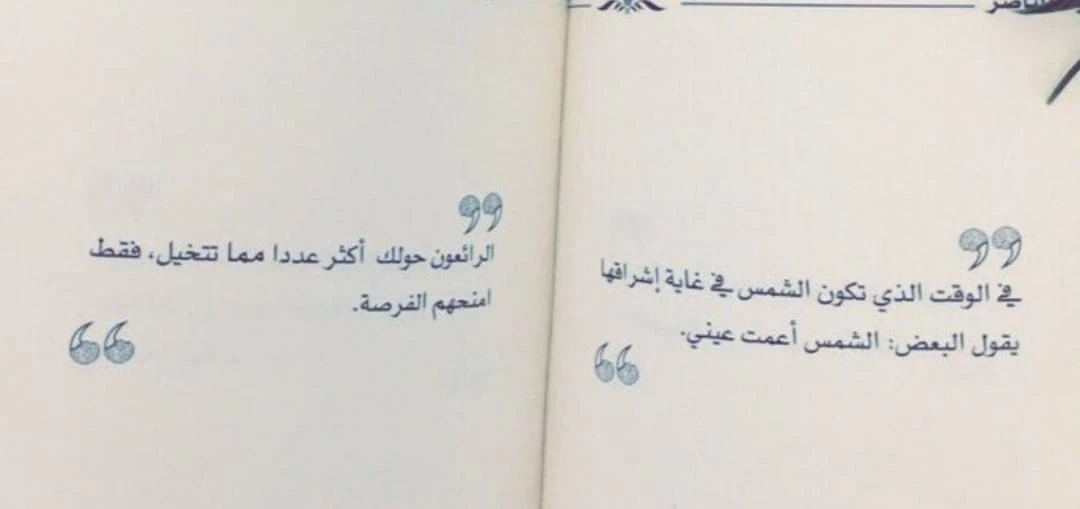 في الوقت الذي تكون الشمس في غاية إشراقها
يقول البعض: الشمس أعمت عيني.
الرائعون حولك أكثر عددا مما تتخيل، فقط
امنحهم الفرصة.